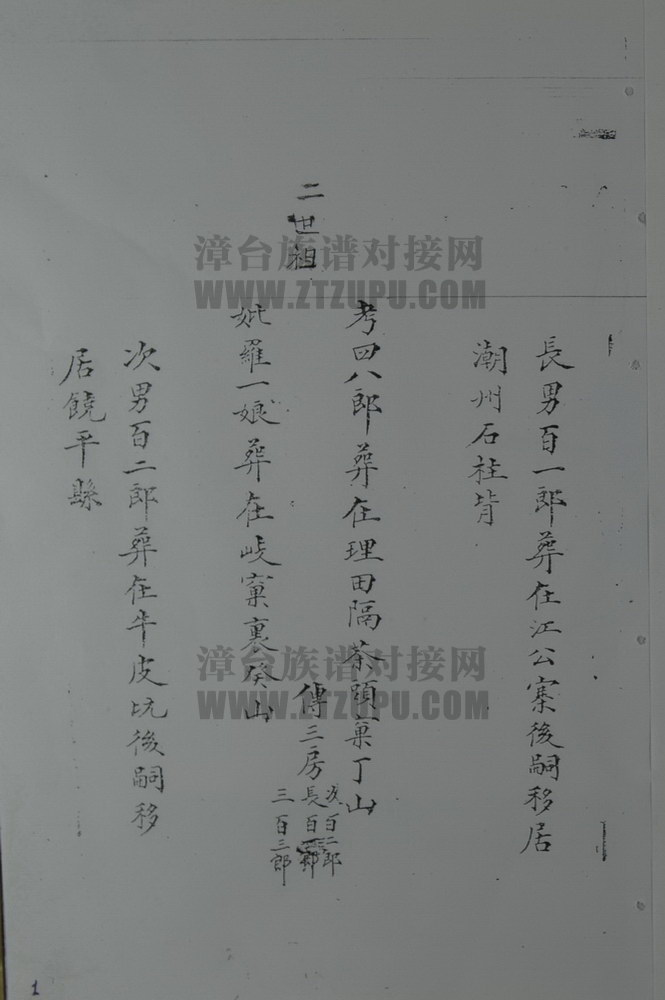 二世祖
長男百一郎葬在江公寨後嗣移居
潮州石柱背
考四八郎葬在理田隔茶頭窠丁山
傳三房
次百二郎
長百一郎
三百三郎
妣羅一娘葬在岐窠裏癸山
次男百二郎葬在牛皮坑後嗣移
居饒平縣
漳台族谱对接网
WWW.ZTZUPU.COM
漳台族谱对接网
WWW.ZTZUPU.COM
1